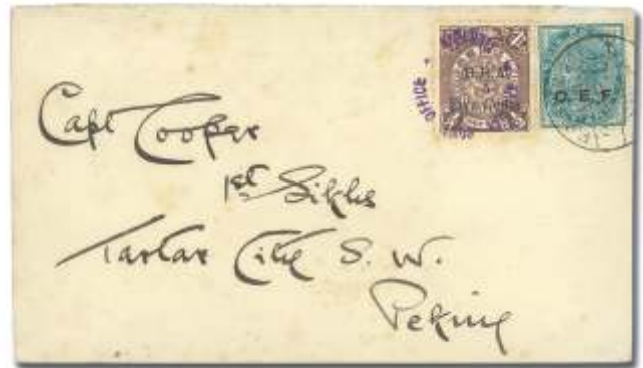 OFFICE
B.R.A.
5
Five Cents
C.E.F.
Capt Cooper
1st Sikhs
Tartar City S. W.
Peking